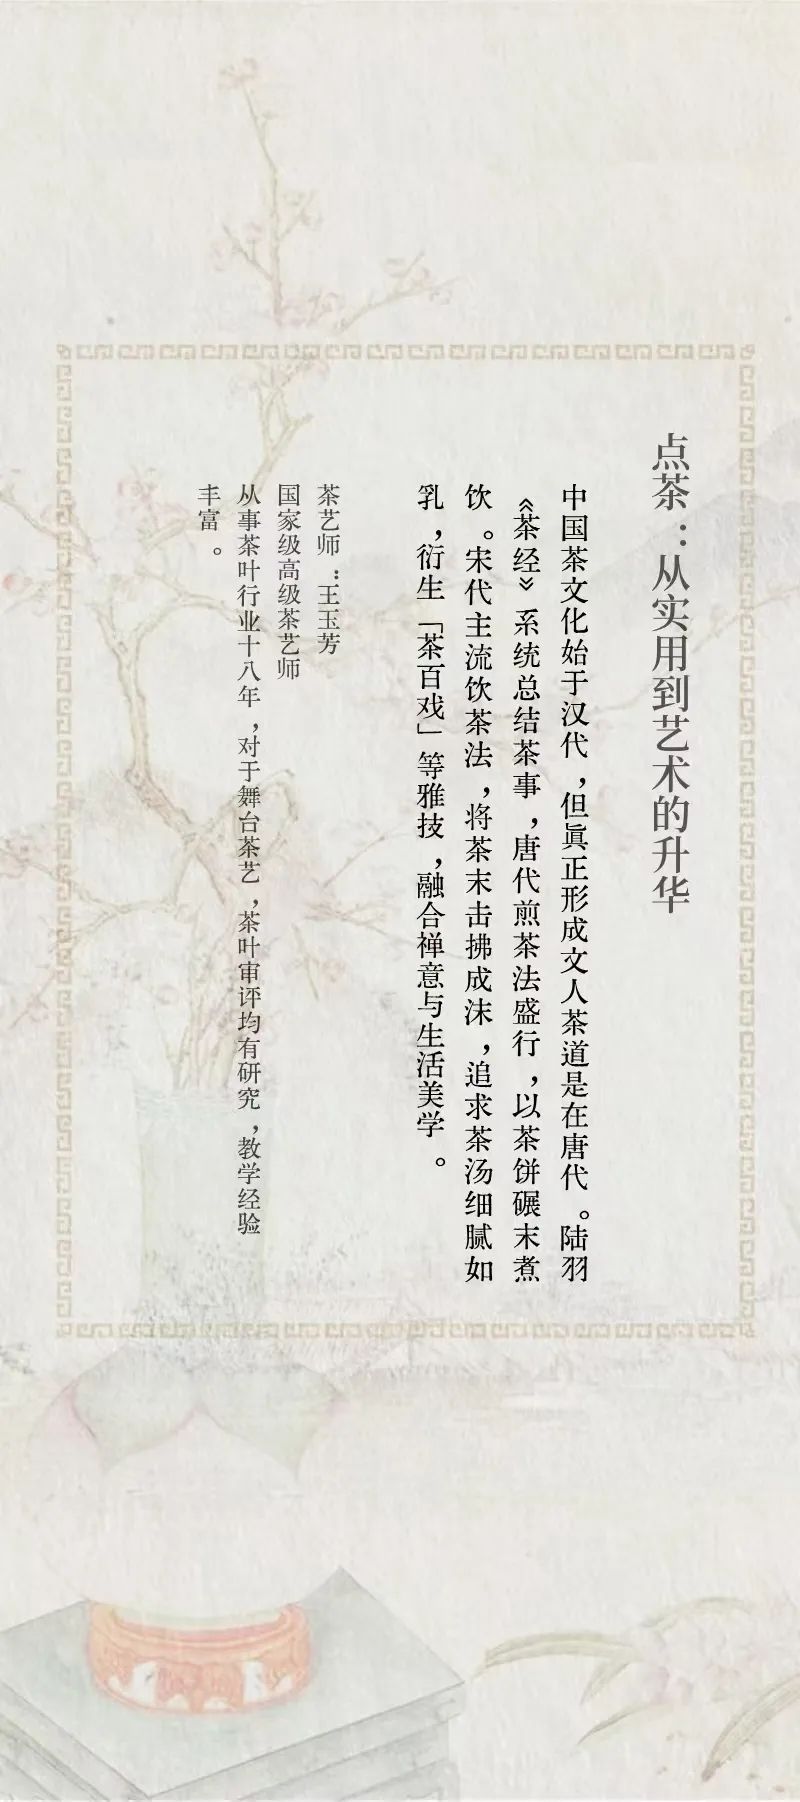 点茶：从实用到艺术的升华
中国茶文化始于汉代，但真正形成文人茶道是在唐代。陆羽
《茶经》系统总结茶事，唐代煎茶法盛行，以茶饼碾末煮
饮。宋代主流饮茶法，将茶末击拂成沫，追求茶汤细腻如
乳，衍生「茶百戏」等雅技，融合禅意与生活美学。
茶艺师：王玉芳
国家级高级茶艺师
从事茶叶行业十八年，对于舞台茶艺，茶叶审评均有研究，教学经验
丰富。